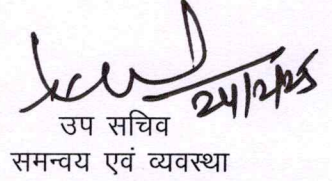 24/2/25
उप सचिव
समन्वय एवं व्यवस्था